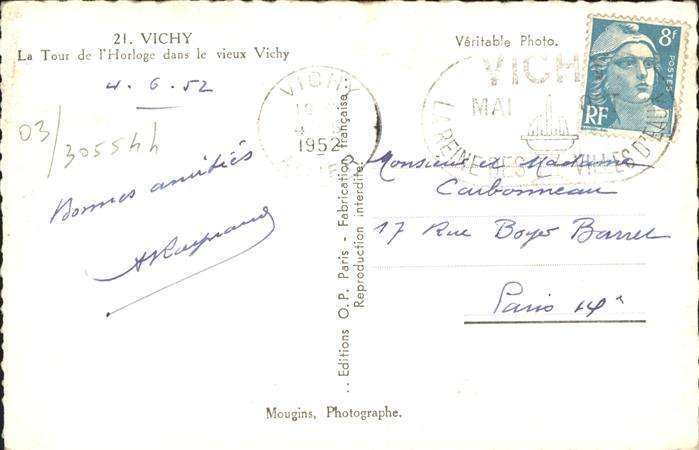 21. VICHY
La Tour de l'Horloge dans le vieux Vichy
4.6.52
03/305544
Bonnes amitiés
Véritable Photo.
8f
POSTES
RF
VICHY
4
1952
VICHY
MAI
LA REINE DES VILLES D'EAUX
Monsieur et Madame
Carbonneau
17 Rue Boyer Barret
Paris 14e
Editions O.P. Paris - Fabrication française
Reproduction interdite.
Mougins, Photographe.